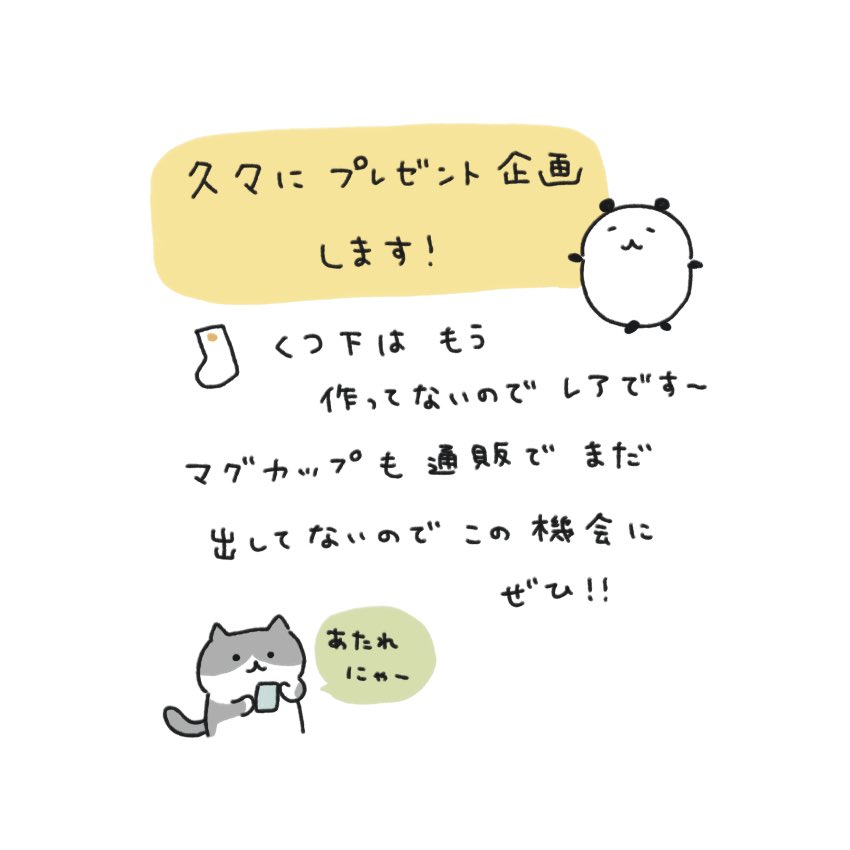 久々に プレゼント 企画
します!
くつ下は もう
作ってないので レアです〜
マグカップも 通販で まだ
出してないので この 機会に
ぜひ!!
あたれ
にゃー